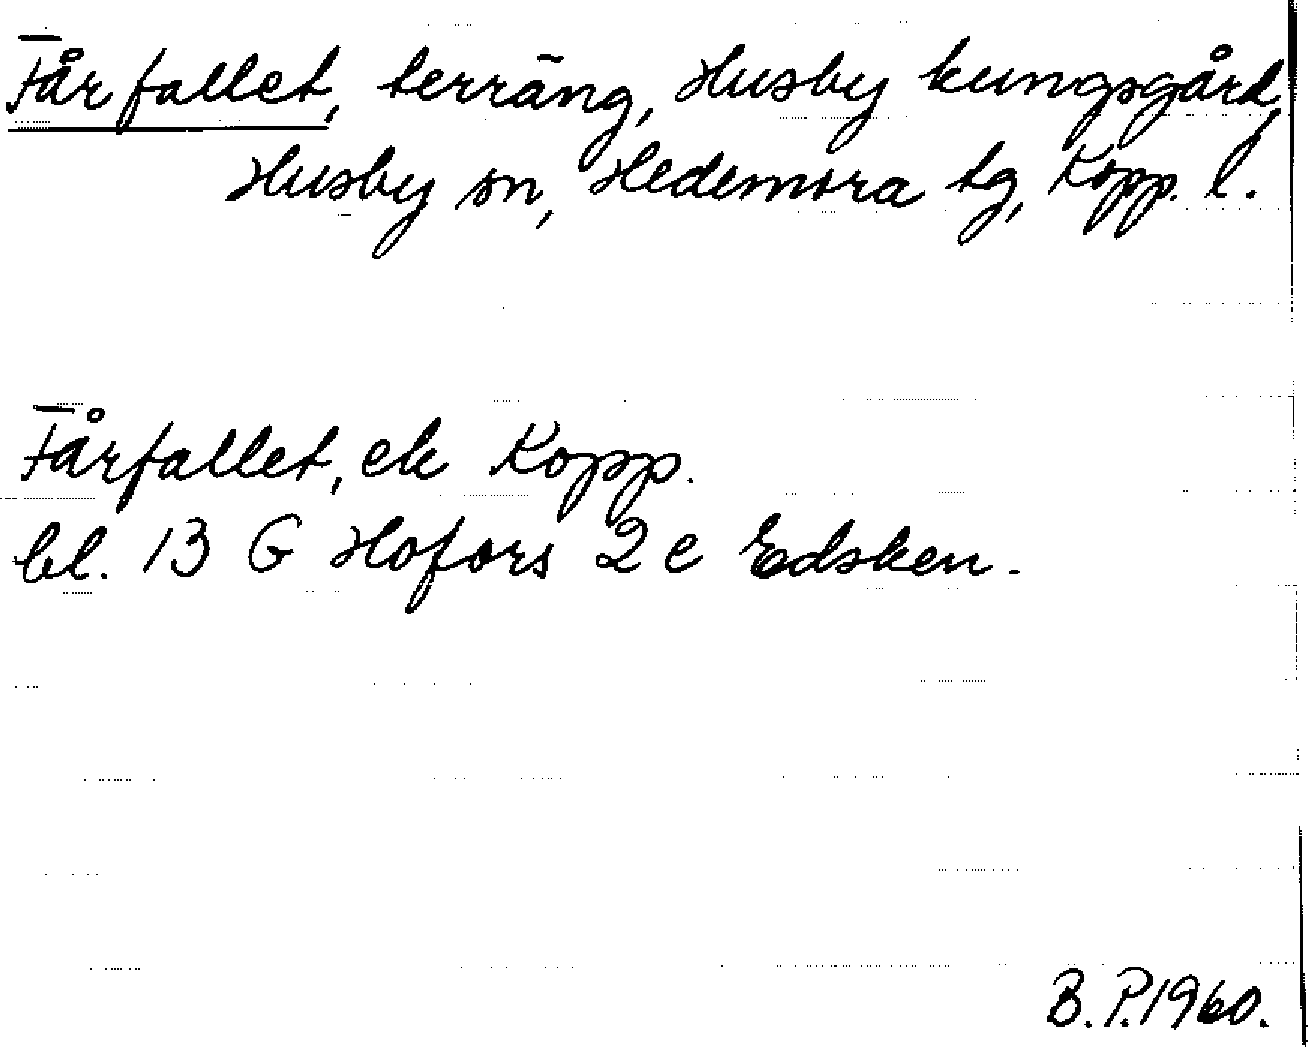 Fårfallet, terräng, Husby kungsgård,
Husby sn, Hedemora tg, Kopp. l.
Fårfallet, ek Kopp.
bl. 13 G Hofors 2 c Edsken.
B. P. 1960.